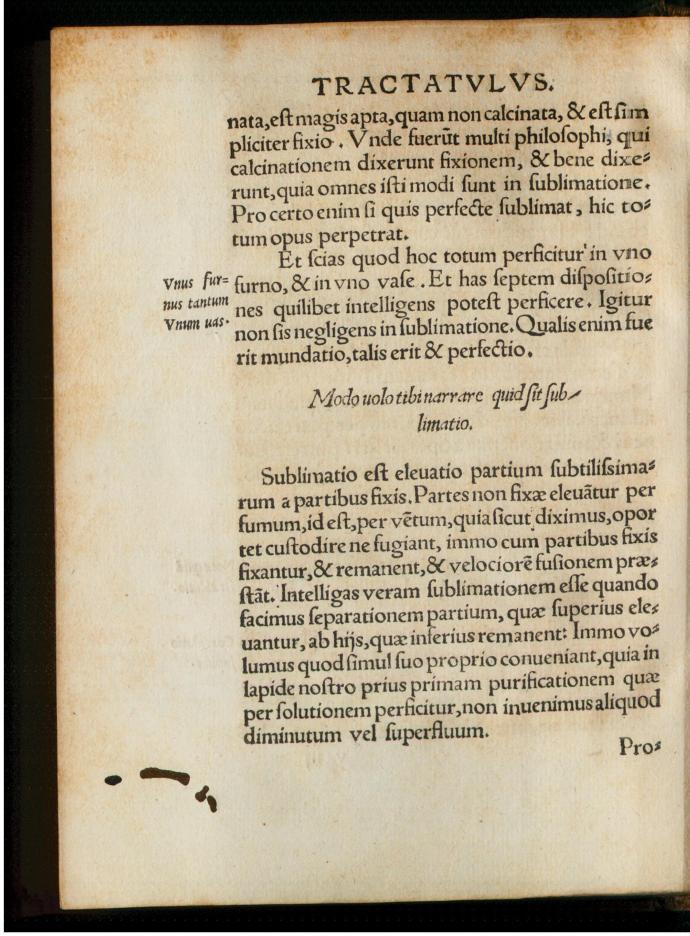 TRACTATVLVS.
nata,eſt magis apta,quam non calcinata, & eſt ſim
pliciter fixio. Vnde fuerūt multi philoſophi, qui
calcinationem dixerunt fixionem, & bene dixe⸗
runt,quia omnes iſti modi ſunt in ſublimatione.
Pro certo enim ſi quis perfecte ſublimat, hic to⸗
tum opus perpetrat.
Et ſcias quod hoc totum perficitur in vno
Vnus fur=
furno, & in vno vaſe. Et has ſeptem diſpoſitio⸗
nus tantum
nes quilibet intelligens poteſt perficere. Igitur
Vnum uas.
non ſis negligens in ſublimatione. Qualis enim fue
rit mundatio,talis erit & perfectio.
Modo uolo tibi narrare quid ſit ſub-
limatio.
Sublimatio eſt eleuatio partium ſubtiliſsima⸗
rum a partibus fixis. Partes non fixæ eleuātur per
fumum,id eſt,per vētum,quia ſicut diximus,opor
tet cuſtodire ne fugiant, immo cum partibus fixis
fixantur,& remanent,& velociorē fuſionem præ⸗
ſtāt. Intelligas veram ſublimationem eſſe quando
facimus ſeparationem partium, quæ ſuperius ele⸗
uantur, ab hijs,quæ inferius remanent: Immo vo⸗
lumus quod ſimul ſuo proprio conueniant,quia in
lapide noſtro prius primam purificationem quæ
per ſolutionem perficitur,non inuenimus aliquod
diminutum vel ſuperfluum.
Pro⸗